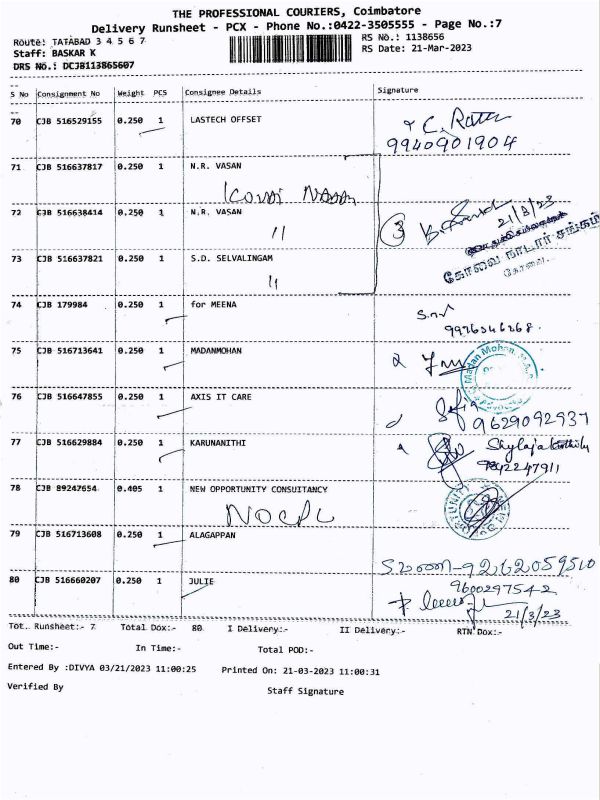 THE PROFESSIONAL COURIERS, Coimbatore
Delivery Runsheet - PCX - Phone No.:0422-3505555 - Page No.:7
Route: TATABAD 3 4 5 6 7 RS No.: 1138656
Staff: BASKAR K RS Date: 21-Mar-2023
DRS No.: DCJB113865607
S No Consignment No Weight PCS Consignee Details Signature
70 CJB 516529155 0.250 1 LASTECH OFFSET
9940901904
71 CJB 516637817 0.250 1 N.R. VASAN
72 CJB 516638414 0.250 1 N.R. VASAN
21/3/23
3
73 CJB 516637821 0.250 1 S.D. SELVALINGAM
கோவை நாடார் சங்கம்
கோவை.
74 CJB 179984 0.250 1 for MEENA
75 CJB 516713641 0.250 1 MADANMOHAN
Madan Mohan
76 CJB 516647855 0.250 1 AXIS IT CARE
Sofia
9629092937
77 CJB 516629884 0.250 1 KARUNANITHI
78 CJB 89247654 0.405 1 NEW OPPORTUNITY CONSUITANCY
NOCPL
79 CJB 516713608 0.250 1 ALAGAPPAN
9262059510
80 CJB 516660207 0.250 1 JULIE
9600297542
21/3/23
Tot. Runsheet:- 7 Total Dox:- 80 I Delivery:- II Delivery:- RTN Dox:-
Out Time:- In Time:- Total POD:-
Entered By :DIVYA 03/21/2023 11:00:25 Printed On: 21-03-2023 11:00:31
Verified By Staff Signature